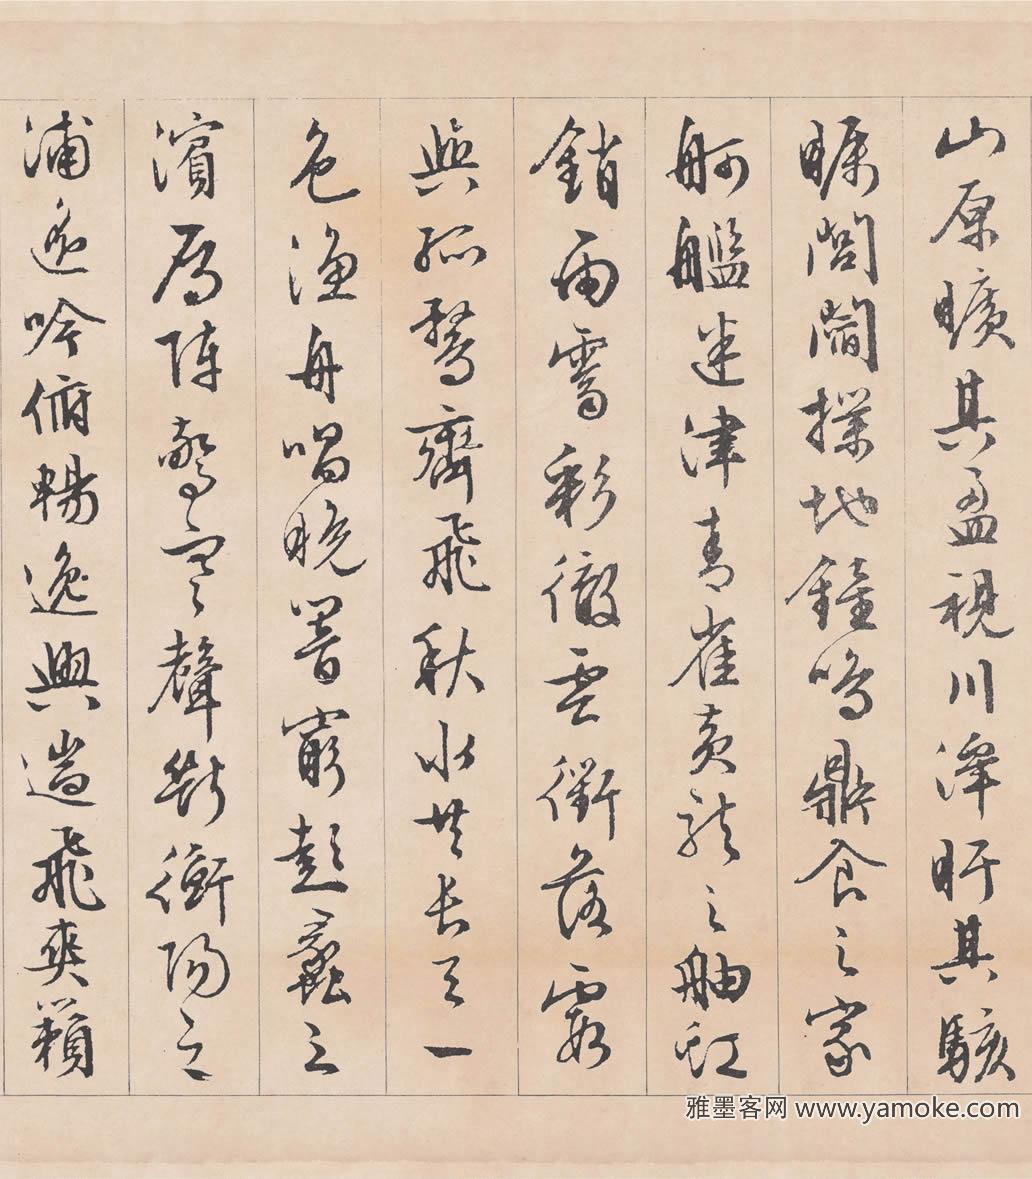 山原曠其盈視川澤盱其駭
矚閭閻撲地鐘鳴鼎食之家
舸艦迷津青雀黃龍之舳虹
銷雨霽彩徹雲衢落霞
與孤鶩齊飛秋水共長天一
色漁舟唱晚響窮彭蠡之
濱雁陣驚寒聲斷衡陽之
浦遙吟俯暢逸興遄飛爽籟
雅墨客网 www.yamoke.com